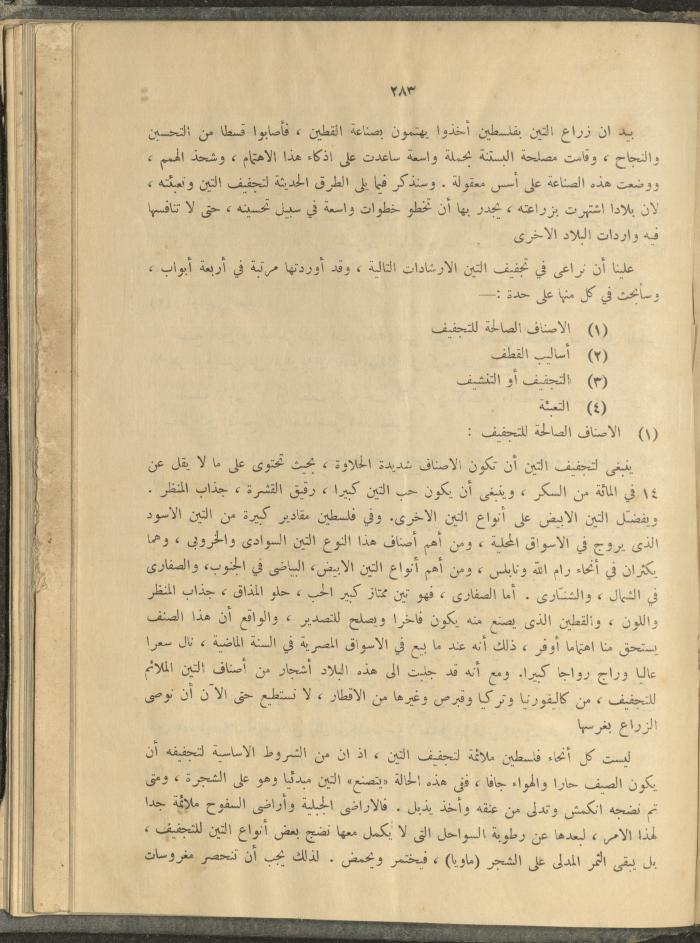 ٢٨٣
بيد ان زراع التين بفلسطين أخذوا يهتمون بصناعة القطين ، فأصابوا قسطا من التحسين
والنجاح ، وقامت مصلحة البستنة بحملة واسعة ساعدت على اذكاء هذا الاهتمام ، وشحذ الهمم ،
ووضعت هذه الصناعة على أسس معقولة . وسنذكر فيما يلى الطرق الحديثة لتجفيف التين وتعبئته ،
لان بلادا اشتهرت بزراعته ، يجدر بها أن تخطو خطوات واسعة في سبيل تحسينه ، حتى لا تنافسها
فيه واردات البلاد الاخرى
علينا أن نراعى في تجفيف التين الارشادات التالية ، وقد أوردتها مرتبة في أربعة أبواب ،
وسأبحث في كل منها على حدة :—
(١) الاصناف الصالحة للتجفيف
(٢) أساليب القطف
(٣) التجفيف أو التنشيف
(٤) التعبئة
(١) الاصناف الصالحة للتجفيف :
ينبغى لتجفيف التين أن تكون الاصناف شديدة الحلاوة ، بحيث تحتوى على ما لا يقل عن
١٤ في المائة من السكر ، وينبغى أن يكون حب التين كبيرا ، رقيق القشرة ، جذاب المنظر .
ويفضـّل التين الابيض على أنواع التين الاخرى. وفي فلسطين مقادير كبيرة من التين الاسود
الذى يروج في الاسواق المحلية ، ومن أهم أصناف هذا النوع التين السوادى والخروبى ، وهما
يكثران في أنحاء رام الله ونابلس ، ومن أهم أنواع التين الابيض، البياضى في الجنوب، والصفارى
في الشمال ، والشنـّارى . أما الصفارى ، فهو تين ممتاز كبير الحب ، حلو المذاق ، جذاب المنظر
واللون ، والقطين الذى يصنع منه يكون فاخرا ويصلح للتصدير ، والواقع أن هذا الصنف
يستحق منا اهتماما أوفر ، ذلك أنه عند ما بيع في الاسواق المصرية في السنة الماضية ، نال سعرا
عاليا وراج رواجا كبيرا. ومع أنه قد جلبت الى هذه البلاد أشجار من أصناف التين الملائم
للتجفيف ، من كاليفورنيا وتركيا وقبرص وغيرها من الاقطار ، لا نستطيع حتى الآن أن نوصى
الزراع بغرسها
ليست كل أنحاء فلسطين ملائمة لتجفيف التين ، اذ ان من الشروط الاساسية لتجفيفه أن
يكون الصيف حارا والهواء جافا ، ففى هذه الحالة «يتصنع» التين مبدئيا وهو على الشجرة ، ومتى
تم نضجه انكمش وتدلى من عنقه وأخذ يذبل . فالاراضى الجبلية وأراضى السفوح ملائمة جدا
لهذا الامر ، لبعدها عن رطوبة السواحل التى لا يكمل معها نضج بعض أنواع التين للتجفيف ،
بل يبقى الثمر المدلى على الشجر (ماويا) ، فيختمر ويحمض . لذلك يجب أن تنحصر مغروسات